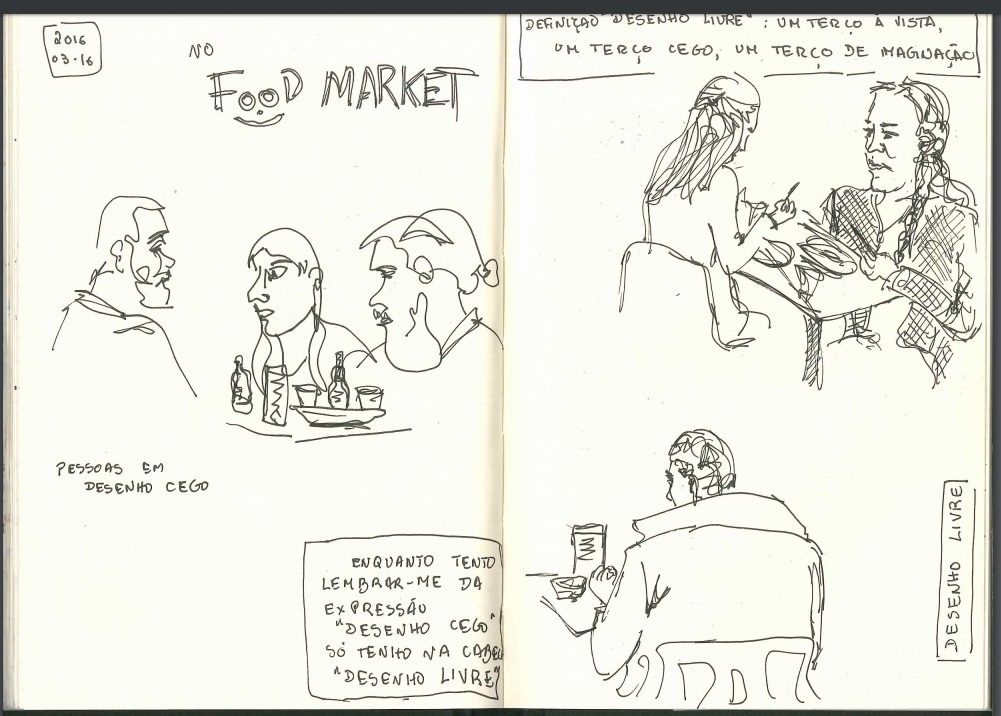 2016
03.16
NO
FOOD MARKET
PESSOAS EM
DESENHO CEGO
ENQUANTO TENTO
LEMBRAR-ME DA
EXPRESSÃO
"DESENHO CEGO"
SÓ TENHO NA CABEÇA
"DESENHO LIVRE"
DEFINIÇÃO "DESENHO LIVRE" : UM TERÇO À VISTA,
UM TERÇO CEGO, UM TERÇO DE IMAGINAÇÃO
DESENHO LIVRE